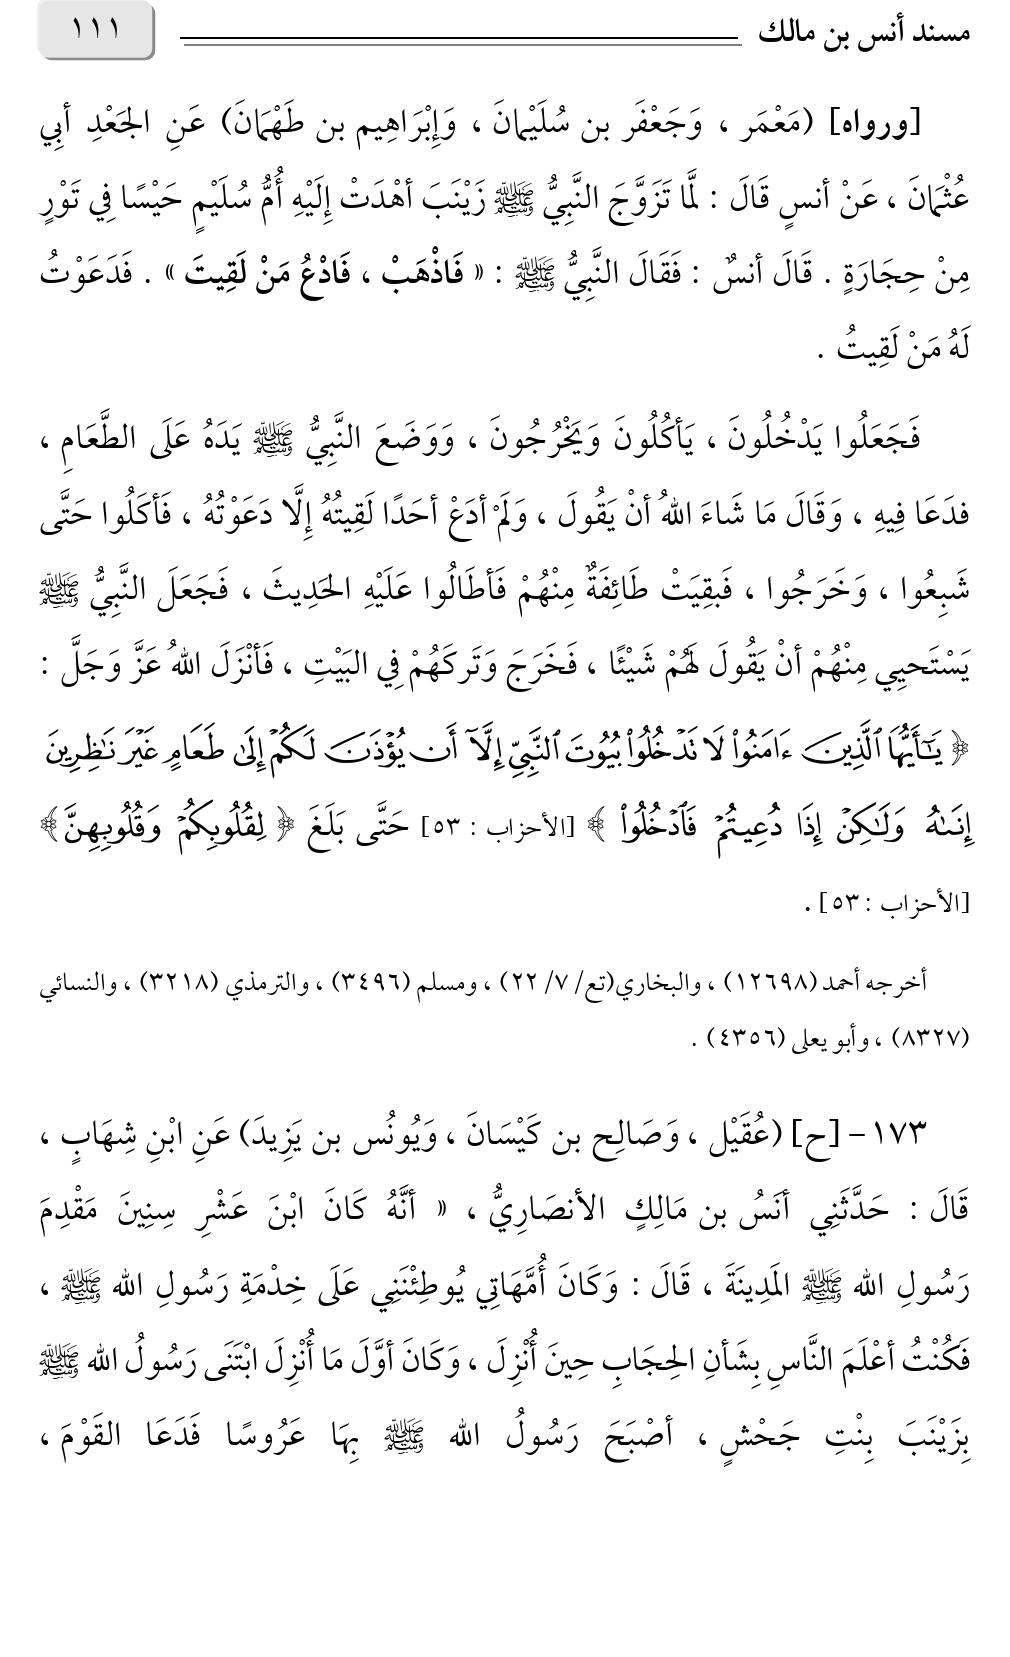 مسند أنس بن مالك ١١١
[ورواه] (مَعْمَر ، وَجَعْفَر بن سُلَيْمانَ ، وَإِبْرَاهِيم بن طَهْمَانَ) عَنِ الجَعْدِ أبِي
عُثْمَانَ ، عَنْ أنسٍ قَالَ : لَمَّا تَزَوَّجَ النَّبِيُّ ﷺ زَيْنَبَ أهْدَتْ إِلَيْهِ أُمُّ سُلَيْمٍ حَيْسًا فِي تَوْرٍ
مِنْ حِجَارَةٍ . قَالَ أنسٌ : فَقَالَ النَّبِيُّ ﷺ : « فَاذْهَبْ ، فَادْعُ مَنْ لَقِيتَ » . فَدَعَوْتُ
لَهُ مَنْ لَقِيتُ .
فَجَعَلُوا يَدْخُلُونَ ، يَأكُلُونَ وَيَخْرُجُونَ ، وَوَضَعَ النَّبِيُّ ﷺ يَدَهُ عَلَى الطَّعَامِ ،
فدَعَا فِيهِ ، وَقَالَ مَا شَاءَ اللهُ أنْ يَقُولَ ، وَلَمْ أدَعْ أحَدًا لَقِيتُهُ إِلَّا دَعَوْتُهُ ، فَأكَلُوا حَتَّى
شَبِعُوا ، وَخَرَجُوا ، فَبقِيَتْ طَائِفَةٌ مِنْهُمْ فَأطَالُوا عَلَيْهِ الحَدِيثَ ، فَجَعَلَ النَّبِيُّ ﷺ
يَسْتَحيِي مِنْهُمْ أنْ يَقُولَ لَهُمْ شَيْئًا ، فَخَرَجَ وَتَركَهُمْ فِي البَيْتِ ، فَأنْزَلَ اللهُ عَزَّ وَجَلَّ :
﴿ يَٰٓأَيُّهَا ٱلَّذِينَ ءَامَنُوا۟ لَا تَدْخُلُوا۟ بُيُوتَ ٱلنَّبِىِّ إِلَّآ أَن يُؤْذَنَ لَكُمْ إِلَىٰ طَعَامٍ غَيْرَ نَٰظِرِينَ
إِنَىٰهُ وَلَٰكِنْ إِذَا دُعِيتُمْ فَٱدْخُلُوا۟ ﴾ [الأحزاب : ٥٣] حَتَّى بَلَغَ ﴿ لِقُلُوبِكُمْ وَقُلُوبِهِنَّ ﴾
[الأحزاب : ٥٣] .
أخرجه أحمد (١٢٦٩٨) ، والبخاري(تع/ ٧/ ٢٢) ، ومسلم (٣٤٩٦) ، والترمذي (٣٢١٨) ، والنسائي
(٨٣٢٧) ، وأبو يعلى (٤٣٥٦) .
١٧٣– [ح] (عُقَيْل ، وَصَالِح بن كَيْسَانَ ، وَيُونُس بن يَزِيدَ) عَنِ ابْنِ شِهَابٍ ،
قَالَ : حَدَّثَنِي أنَسُ بن مَالِكٍ الأنصَارِيُّ ، « أنَّهُ كَانَ ابْنَ عَشْرِ سِنِينَ مَقْدِمَ
رَسُولِ الله ﷺ المَدِينَةَ ، قَالَ : وَكَانَ أُمَّهَاتِي يُوطِئْنَنِي عَلَى خِدْمَةِ رَسُولِ الله ﷺ ،
فَكُنْتُ أعْلَمَ النَّاسِ بِشَأنِ الحِجَابِ حِينَ أُنْزِلَ ، وَكَانَ أوَّلَ مَا أُنْزِلَ ابْتَنَى رَسُولُ الله ﷺ
بِزَيْنَبَ بِنْتِ جَحْشٍ ، أصْبَحَ رَسُولُ الله ﷺ بِهَا عَرُوسًا فَدَعَا القَوْمَ ،